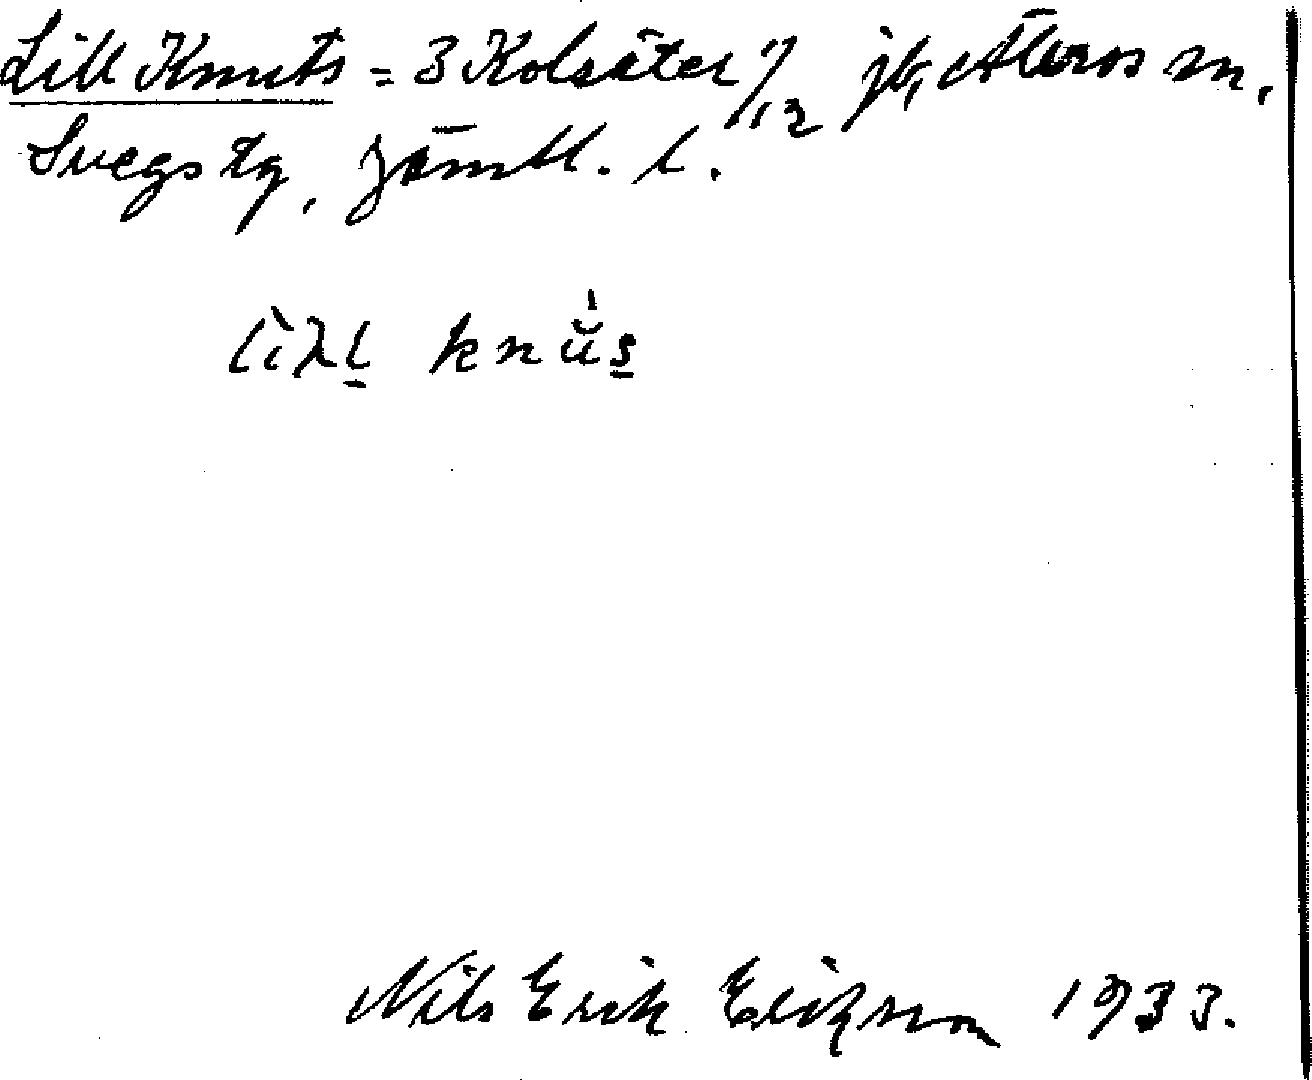 Lill Knuts = 3 Kolsäter 1/12 jb, Älvros sn.
Svegs tg, Jämtl. l.
lìλl knús
Nils Erik Erikson 1933.